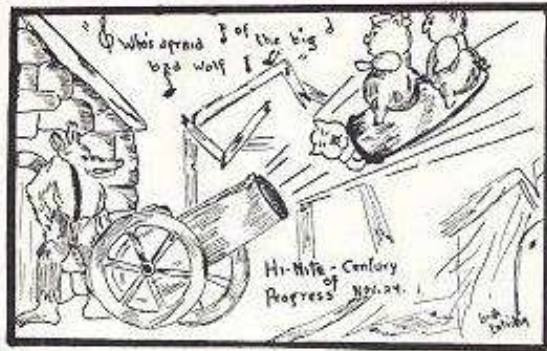 Who's afraid of the big
bad wolf
Hi-Nite-Century
of
Progress Nov. 24.